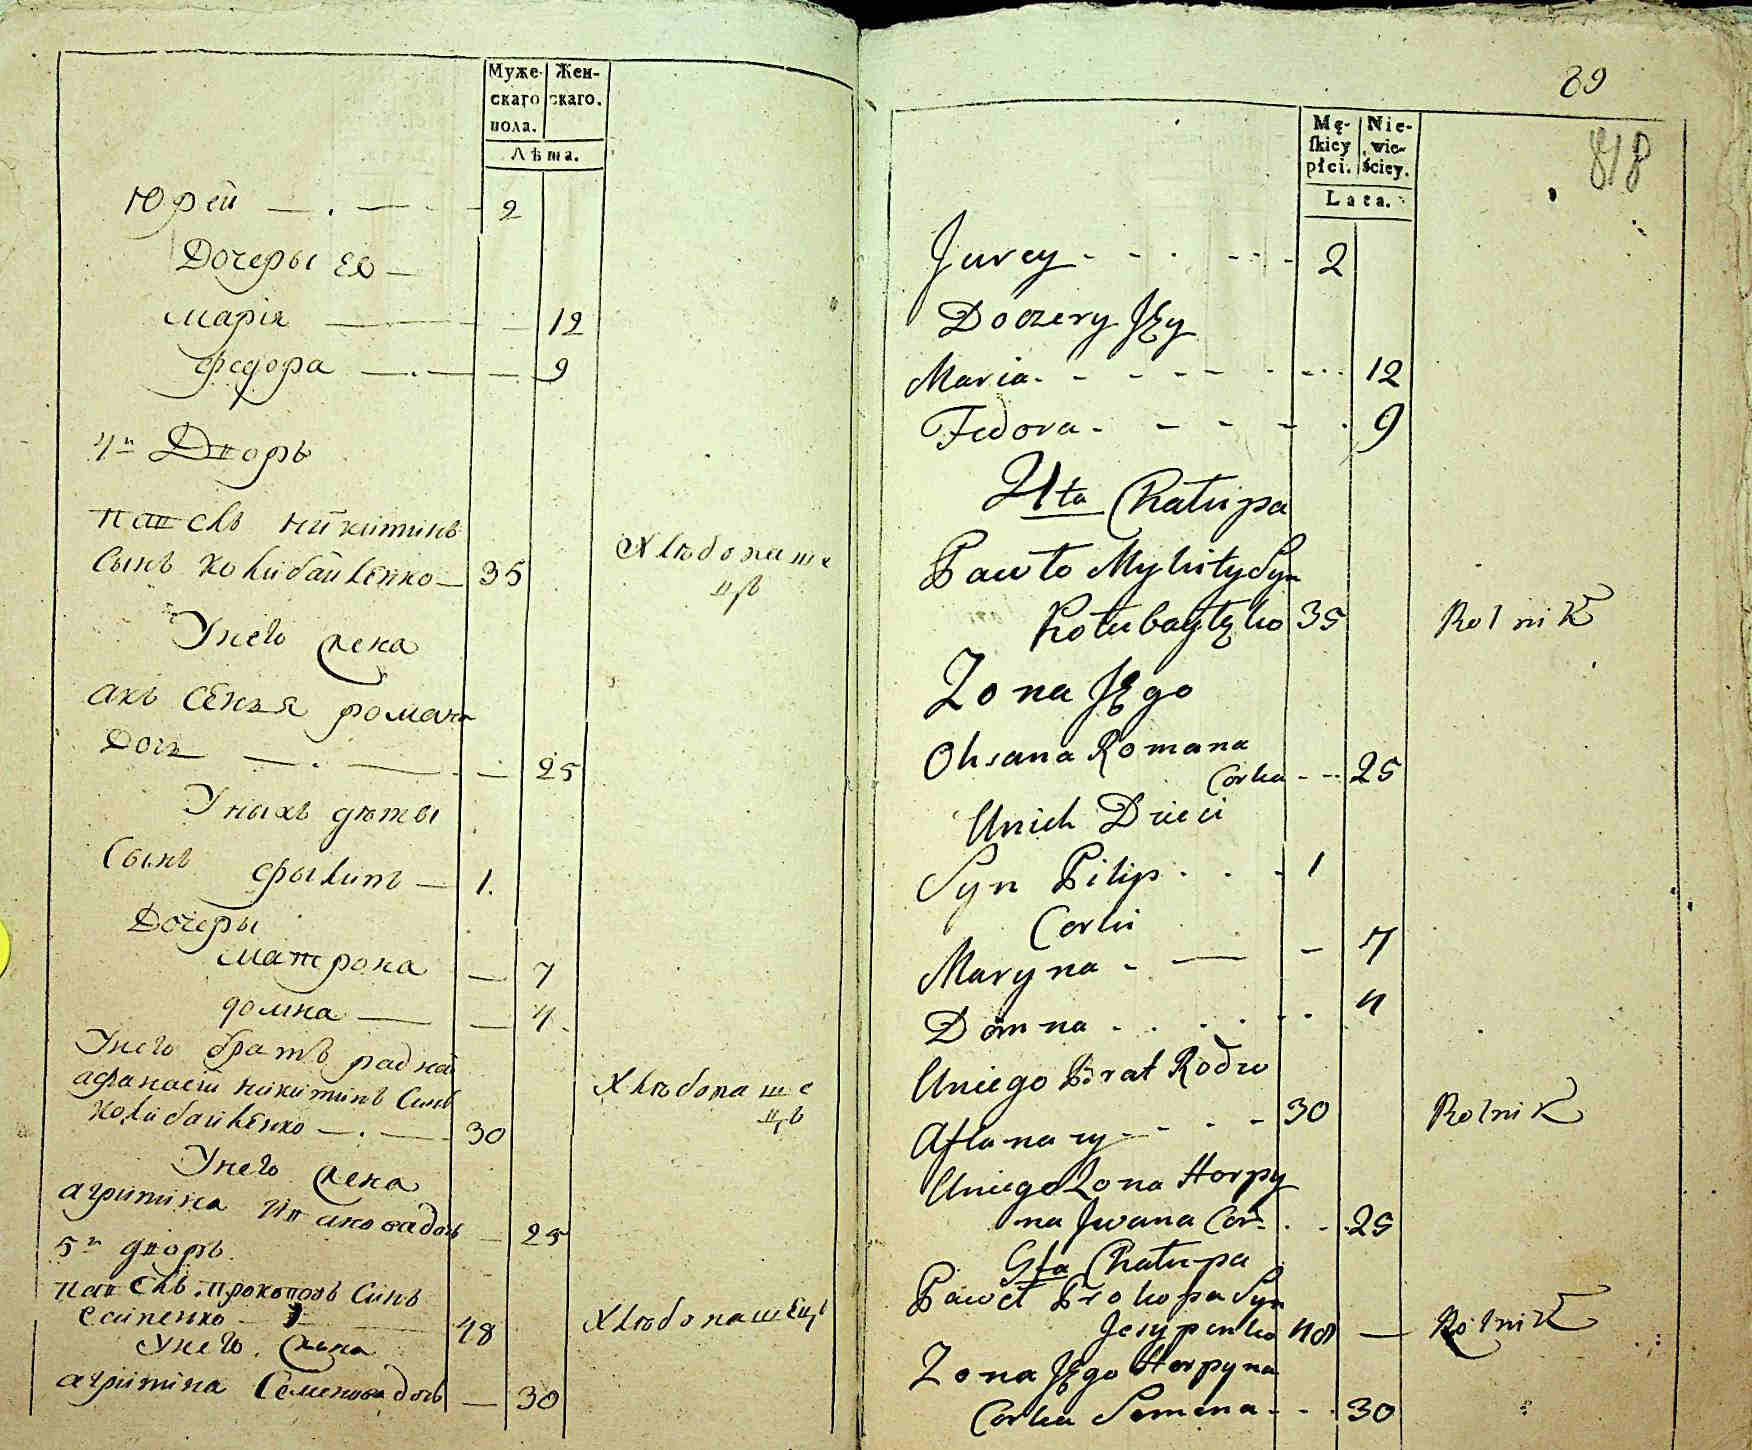 Муже-
скаго
пола.
Жен-
скаго.
Лѣта.
Юрей 2
Дочеры Ею
Марія 12
Федора 9
4й Дворъ
Павелъ Никитинъ
Сынъ Колибайленко 35
Хлѣбопаше
цъ
У него жена
Аксенія Романа
Дочь 25
У ныхъ дѣты
Сынъ Фылипъ 1.
Дочеры
Матрона 7
Домна 4.
У него братъ радной
Афанасій Никитинъ Синъ
Колибайленко 30
Хлѣбопаше
цъ
У него жена
Агрипина Иванова дочь 25
5й дворъ
Павелъ Прокоповъ Синъ
Есипенко 48
Хлѣбопашецъ
У него жена
Агрипина Семенова дочь 30
89
818
Mę-
skiey
płci.
Nie-
wie-
ściey.
Lata.
Jurey 2
Doczery Jęy
Maria 12
Fedora 9
4ta Chałupa
Pawło Mykity Syn
Kołubayłęko 35 Rolnik
Zona Jęgo
Oksana Romana
Corka 25
Unich Dzieci
Syn Pilip 1
Corki
Maryna 7
Domna 4
Uniego Brat Rodzo
Afanazy 30 Rolnik
Uniego Zona Horpy
na Jwana Cor. 25
5ta Chałupa
Paweł Prokopa Syn
Jesypenko 48 Rolnik
Zona Jęgo Horpyna
Corka Semena 30